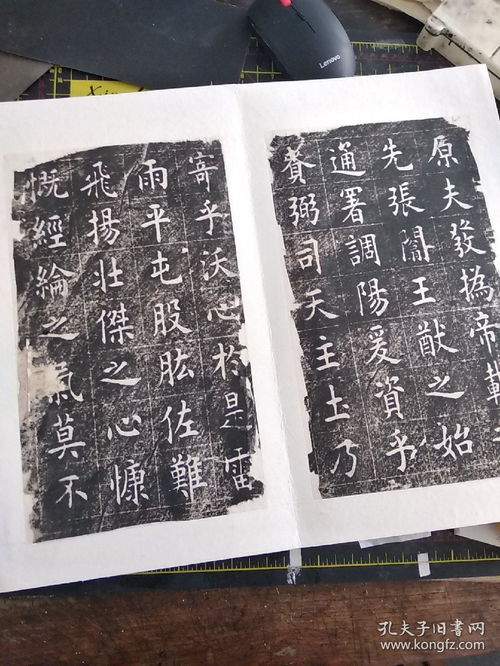 原夫發撝帝載
先張闡王猷之始
通署調陽爰資乎
賚弼司天主土乃
寄乎沃心於是雷
雨平屯股肱佐難
飛揚壯傑之心慷
慨經綸之氣莫不
Lenovo
孔夫子旧书网
www.kongfz.com